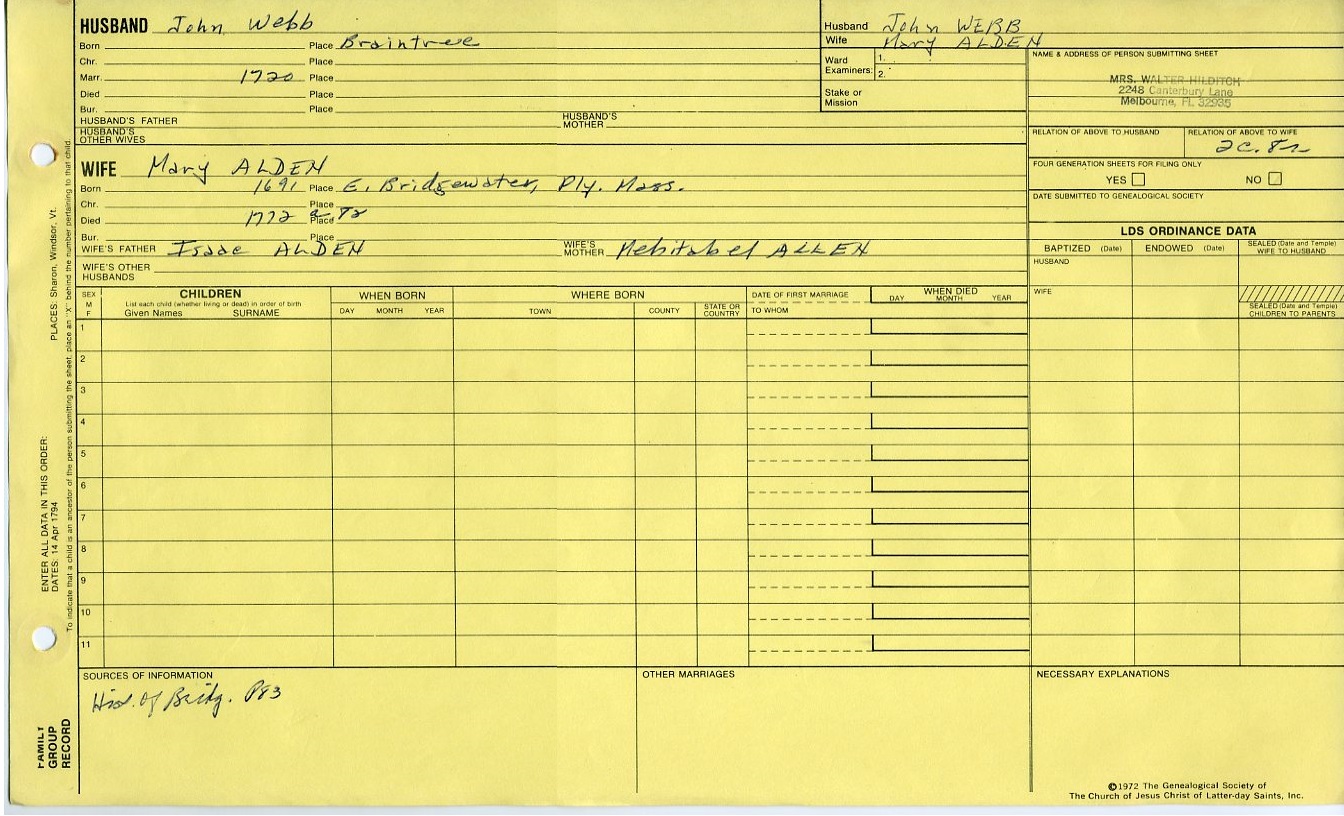 HUSBAND John Webb
Born Place Braintree
Chr. Place
Marr. 1720 Place
Died Place
Bur. Place
HUSBAND'S FATHER HUSBAND'S MOTHER
HUSBAND'S OTHER WIVES
Husband John WEBB
Wife Mary ALDEN
Ward Examiners: 1.
2.
Stake or Mission
NAME & ADDRESS OF PERSON SUBMITTING SHEET
MRS. WALTER HILDITCH
2248 Canterbury Lane
Melbourne, FL 32935
RELATION OF ABOVE TO HUSBAND RELATION OF ABOVE TO WIFE
2C. 8r
FOUR GENERATION SHEETS FOR FILING ONLY
YES NO
DATE SUBMITTED TO GENEALOGICAL SOCIETY
WIFE Mary ALDEN
Born 1691 Place E. Bridgewater, Ply. Mass.
Chr. Place
Died 1772 Place
Bur. Place
WIFE'S FATHER Isaac ALDEN WIFE'S MOTHER Mehitabel ALLEN
WIFE'S OTHER HUSBANDS
LDS ORDINANCE DATA
BAPTIZED (Date) ENDOWED (Date) SEALED (Date and Temple) WIFE TO HUSBAND
HUSBAND
WIFE
SEALED (Date and Temple) CHILDREN TO PARENTS
SEX M F
CHILDREN
List each child (whether living or dead) in order of birth
Given Names SURNAME
WHEN BORN
DAY MONTH YEAR
WHERE BORN
TOWN COUNTY STATE OR COUNTRY
DATE OF FIRST MARRIAGE
TO WHOM
WHEN DIED
DAY MONTH YEAR
1
2
3
4
5
6
7
8
9
10
11
SOURCES OF INFORMATION
Hist. of Bridg. P83
OTHER MARRIAGES
NECESSARY EXPLANATIONS
©1972 The Genealogical Society of
The Church of Jesus Christ of Latter-day Saints, Inc.
FAMILY GROUP RECORD
ENTER ALL DATA IN THIS ORDER:
DATES: 14 Apr 1794
PLACES: Sharon, Windsor, Vt.
To indicate that a child is an ancestor of the person submitting the sheet, place an "X" behind the number pertaining to that child.